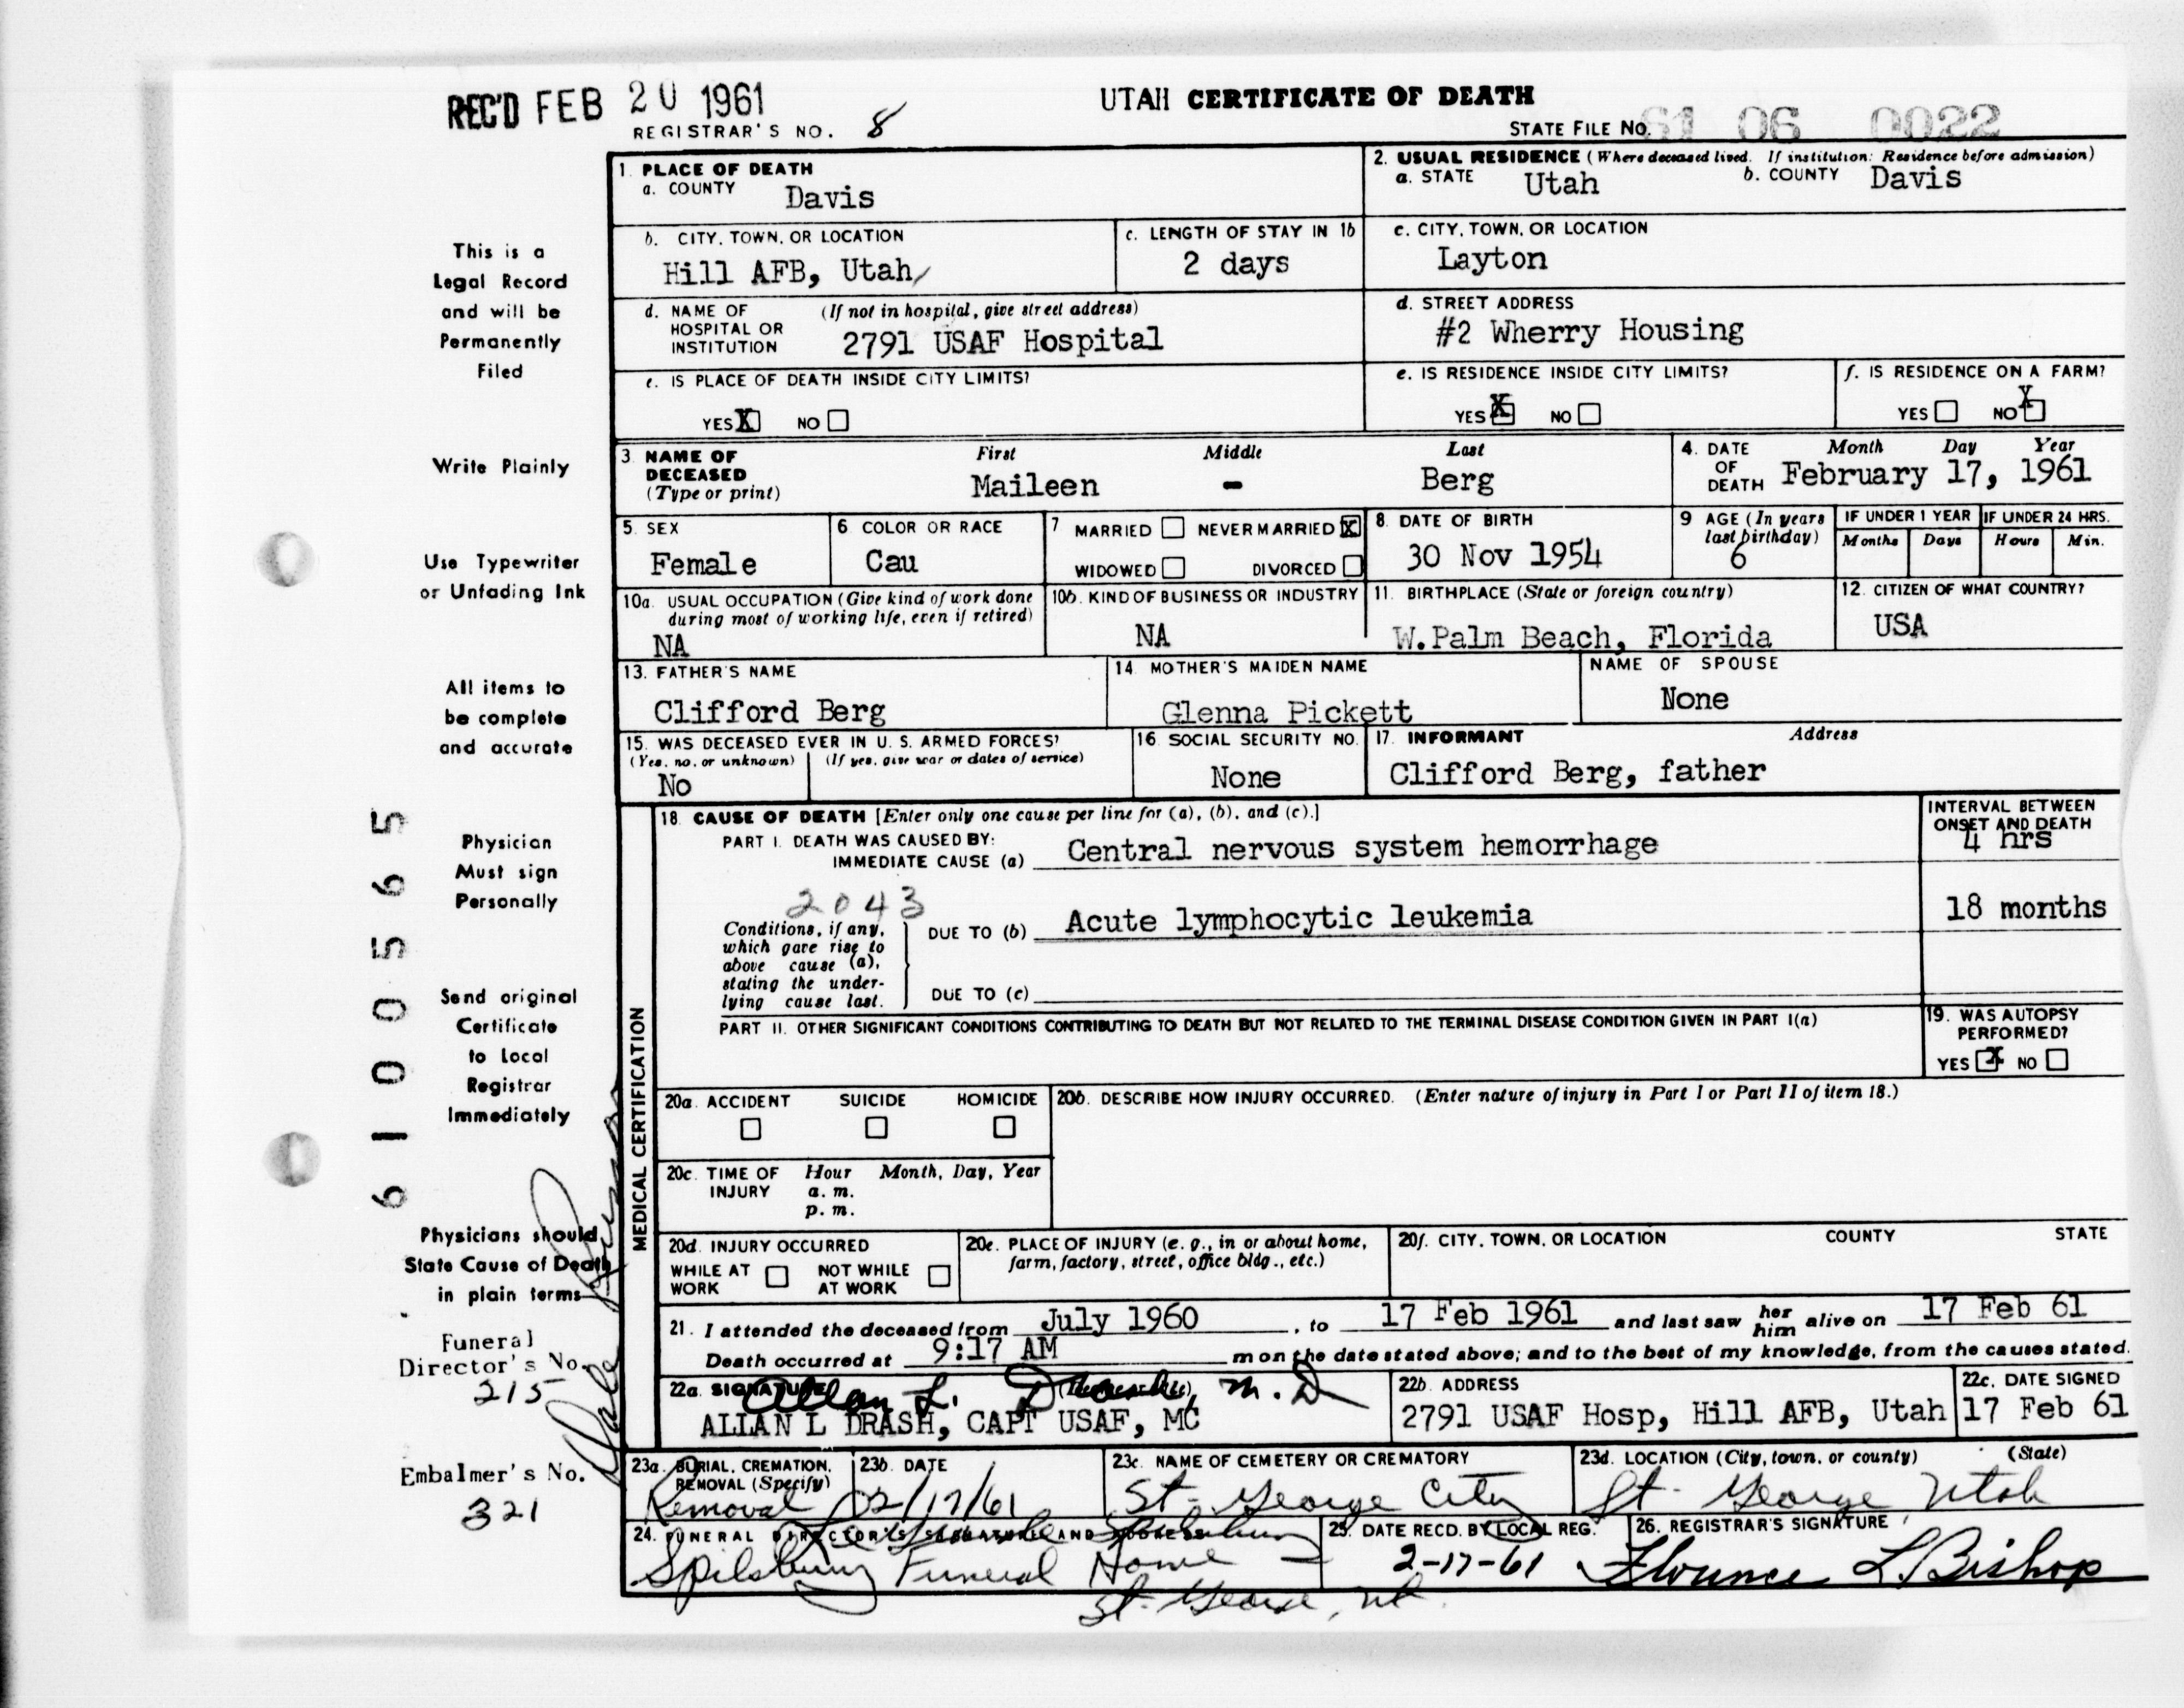 REC'D FEB 20 1961
UTAH CERTIFICATE OF DEATH
REGISTRAR'S NO. 8
STATE FILE NO. 61 06 0022
1. PLACE OF DEATH
a. COUNTY Davis
2. USUAL RESIDENCE (Where deceased lived. If institution: Residence before admission)
a. STATE Utah b. COUNTY Davis
b. CITY, TOWN, OR LOCATION
Hill AFB, Utah
c. LENGTH OF STAY IN 1b
2 days
c. CITY, TOWN, OR LOCATION
Layton
d. NAME OF HOSPITAL OR INSTITUTION (If not in hospital, give street address)
2791 USAF Hospital
d. STREET ADDRESS
#2 Wherry Housing
e. IS PLACE OF DEATH INSIDE CITY LIMITS?
YES X NO
e. IS RESIDENCE INSIDE CITY LIMITS?
YES X NO
f. IS RESIDENCE ON A FARM?
YES NO X
3. NAME OF DECEASED (Type or print)
First Middle Last
Maileen - Berg
4. DATE OF DEATH Month Day Year
February 17, 1961
5. SEX
Female
6 COLOR OR RACE
Cau
7 MARRIED NEVER MARRIED X
WIDOWED DIVORCED
8. DATE OF BIRTH
30 Nov 1954
9 AGE (In years last birthday)
6
IF UNDER 1 YEAR IF UNDER 24 HRS.
Months Days Hours Min.
10a. USUAL OCCUPATION (Give kind of work done during most of working life, even if retired)
NA
10b. KIND OF BUSINESS OR INDUSTRY
NA
11. BIRTHPLACE (State or foreign country)
W.Palm Beach, Florida
12. CITIZEN OF WHAT COUNTRY?
USA
13. FATHER'S NAME
Clifford Berg
14. MOTHER'S MAIDEN NAME
Glenna Pickett
NAME OF SPOUSE
None
15. WAS DECEASED EVER IN U. S. ARMED FORCES?
(Yes, no, or unknown) (If yes, give war or dates of service)
No
16. SOCIAL SECURITY NO.
None
17. INFORMANT Address
Clifford Berg, father
MEDICAL CERTIFICATION
18. CAUSE OF DEATH [Enter only one cause per line for (a), (b), and (c).]
INTERVAL BETWEEN ONSET AND DEATH
PART I. DEATH WAS CAUSED BY:
IMMEDIATE CAUSE (a) Central nervous system hemorrhage
4 hrs
2043
Conditions, if any, which gave rise to above cause (a), stating the underlying cause last.
DUE TO (b) Acute lymphocytic leukemia
18 months
DUE TO (c)
PART II. OTHER SIGNIFICANT CONDITIONS CONTRIBUTING TO DEATH BUT NOT RELATED TO THE TERMINAL DISEASE CONDITION GIVEN IN PART I(a)
19. WAS AUTOPSY PERFORMED?
YES X NO
20a. ACCIDENT SUICIDE HOMICIDE
20b. DESCRIBE HOW INJURY OCCURRED. (Enter nature of injury in Part I or Part II of item 18.)
20c. TIME OF INJURY Hour Month, Day, Year
a. m.
p. m.
20d. INJURY OCCURRED
WHILE AT WORK NOT WHILE AT WORK
20e. PLACE OF INJURY (e. g., in or about home, farm, factory, street, office bldg., etc.)
20f. CITY, TOWN, OR LOCATION COUNTY STATE
21. I attended the deceased from July 1960, to 17 Feb 1961 and last saw her him alive on 17 Feb 61
Death occurred at 9:17 AM m on the date stated above; and to the best of my knowledge, from the causes stated.
22a. SIGNATURE
Allan L. Drash, M.D
ALLAN L DRASH, CAPT USAF, MC
22b. ADDRESS
2791 USAF Hosp, Hill AFB, Utah
22c. DATE SIGNED
17 Feb 61
23a. BURIAL, CREMATION, REMOVAL (Specify)
Removal
23b. DATE
02/17/61
23c. NAME OF CEMETERY OR CREMATORY
St. George City
23d. LOCATION (City, town, or county) (State)
St. George Utah
24. FUNERAL DIRECTOR'S SIGNATURE AND ADDRESS
Spilsbury Funeral Home
St. George, Ut.
25. DATE RECD. BY LOCAL REG.
2-17-61
26. REGISTRAR'S SIGNATURE
Florence L Bishop
This is a
Legal Record
and will be
Permanently
Filed
Write Plainly
Use Typewriter
or Unfading Ink
All items to
be complete
and accurate
Physician
Must sign
Personally
Send original
Certificate
to Local
Registrar
Immediately
Physicians should
State Cause of Death
in plain terms
Funeral
Director's No.
215
Embalmer's No.
321
61005655
Dale